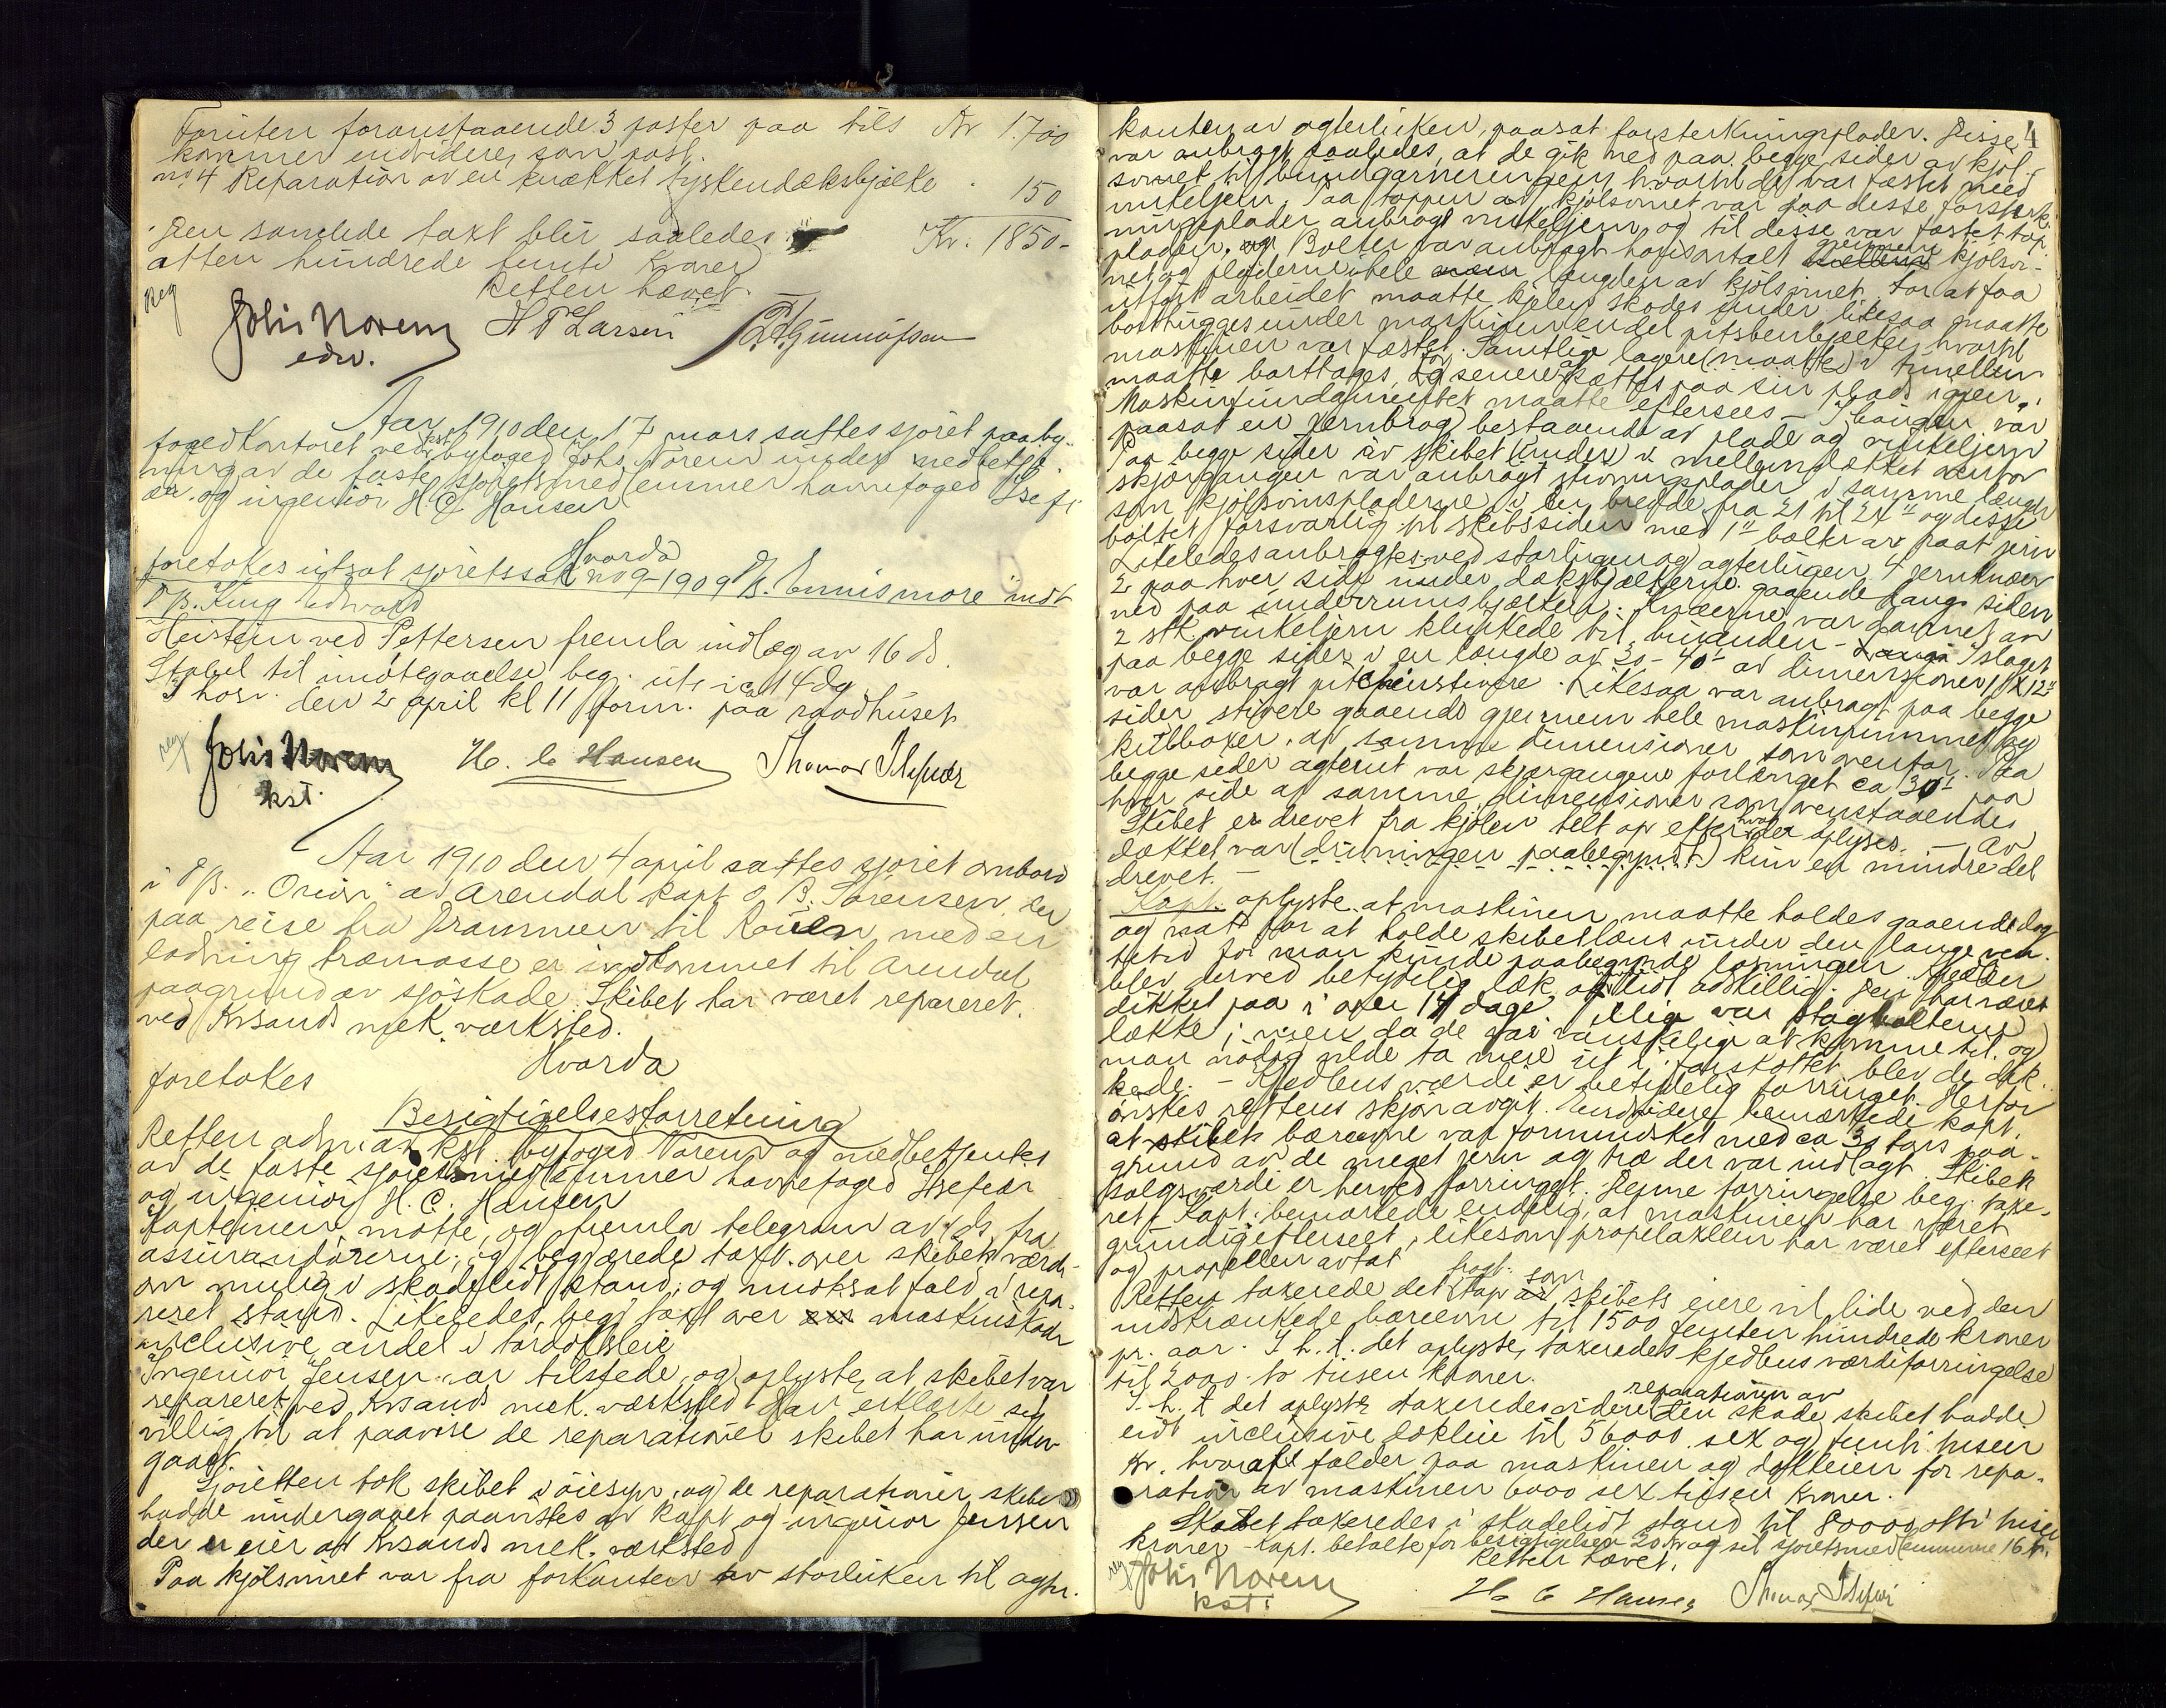 Foruten foranstaaende 3 poster paa tils Kr 1.700
kommer endvidere som post.
no 4 Reparation av en knækket tystendæksbjælke . 150
Den samlede taxt blir saaledes Kr. 1850-
atten hundrede femti kroner
Retten hævet
Reg
Johs Norem H P Larsen Gunnufsen
edw.
Aar 1910 den 17 mars sattes sjöret paa by-
fogedkontoret ved kst byfoged Johs. Norem under medbetjē-
ning av de faste sjöretsmedlemmer havnefoged Isefi-
ær og ingeniör H. C. Hansen
Hvorda
foretokes utsat sjöretssak no 9-1909 D/S. Ennismore indt
D/S. King Edward
Heistein ved Pettersen fremla indlæg av 16 ds.
Stabel til imötegaaelse beg. uts ca 14 dg
T hosv. den 2 april kl 11 form. paa raadhuset
reg
Johs Norem H. C Hansen Thomas Isefiær
kst.
Aar 1910 den 4 april sattes sjöret ombord
i D/S. "Orion" av Arendal kapt O. B. Sörensen, der
paa reise fra Drammen til Rouen med en
ladning træmasse er indkommet til Arendal
paagrund av sjöskade. Skibet har været repareret
ved Krsands mek. værksted.
Hvorda
foretokes
Besigtigelsesforretning
Retten adm. av kst. byfoged Norem og medbetjentes
av de faste sjöretsmedlemmer havnefoged Isefiær
og ingeniör H. C. Hansen
Kapteinen mötte, og fremla telegram av ds, fra
assurandörerne, og begjærede taxt. over skibets værdi
om mulig i skadelidt stand, og i motsat fald i repa-
reret stand. Likeledes beg. taxt over maskinskade
inclusive andel i tördokleie
Ingeniör Jensen var tilstede, og oplyste, at skibet var
repareret ved Krsands mek. værksted Han erklærte sig
villig til at paavise de reparationer skibet har under-
gaaet
Sjöretten tok skibet i öiesyn, og de reparationer skibet
hadde undergaaet paavistes av kapt og ingeniör Jensen
der er eier af Krsands mek. værksted
Paa kjölsvinet var fra forkanten av storluken til agter-
4
kanten av agterluken, paasat forsterkningsplader. Disse
var anbragt saaledes, at de gik ned paa begge sider av kjöl-
svinet til bundgarneringen, hvortil de var fæstet med
vinkeljern. Paa toppen av kjölsvinet var paa disse forstærk-
ningsplader anbragt vinkeljern og til disse var fæstet top-
plader. Bolter var anbragt horisontalt gjennem kjölsvi-
net og pladerne i hele længden av kjölsvinet. For at faa
utfört arbeidet maatte kjelen skodes under likesaa maatte
borthugges under maskinen endel pitspenbjælker, hvortil
maskinen var fæstet. Samtlige lagere (maatte) i tunellen
maatte borttages, for senere at sættes paa sin plads igjen.
Maskinfundamentet maatte eftersees — I baugen var
paasat en jernbrog bestaaende av plade og vinkeljern
Paa begge sider av skibet (under) i mellemdækket nenfor
skjærgangen var anbragt stivningsplader i samme længde
som kjölsvinspladerne i en bredde fra 21 til 24" og disse
boltet forsvarlig til skibssiden med 1" bolter av paat jern
Likeledes anbragtes ved storlugen og agterlugen 4 jernknær
2 paa hver side under dæksbjælkerne. gaaende langs siden
ned paa underrumsbjælken. Knæerne var dannet av
2 stk vinkeljern klinkede til hinanden - I slaget
paa begge sider i en længde av 30 - 40' av dimensioner 11 X 12"
var anbragt pitchpinstivere. Likesaa var anbragt paa begge
sider stivere gaaende gjennem hele maskinrummet og
kulboxer. av samme dimensioner som ovenfor. Paa
begge sider agterut var skjærgangene forlænget ca 30' paa
hver side av samme dimensioner som ovenstaaendes
Skibet er drevet fra kjölen helt op efter hvad der oplyses. — Av
dækket var (drivningen paabegyndt) kun en mindre del
drevet. —
Kapt. oplyste at maskinen maatte holdes gaaende dag
og nat for at holde skibet læns under den lange ven-
tetid for man kunde paabegynde losningen. Kjedlen
blev derved betydelig læk og lidt adskillig. Den har været
dikket paa i over 14 dage. Illige var stagbolterne
lække; men da de var vanskelige at komme til, og
man nödig vilde ta mere ut i forskottet, blev de dik-
kede. - Kjedlens værdi er betydelig forringet. Herfor
önskes rettens skjön avgit. Endvidere bemærkede kapt.
at skibets bæreevne var formindsket med ca 30 tons paa-
grund av de meget jern og træ der var indlagt. Skibets
salgsværdi er herved forringet. Denne forringelse beg. taxe-
ret. Kapt. bemærkede endelig, at maskinen har været
grundig efterseet, likesom propelaxlen har været efterseet
og propellen avtat
Retten taxerede det fragt tap som skibets eiere vil lide ved den
indskrænkede bæreevne til 1500 femten hundrede kroner
pr. aar. I h. t. det oplyste, taxeredes kjedlens værdiforringelse
til 2000 to tusen kroner.
I. h. t det oplyste taxeredes videre reparationen av den skade skibet hadde
lidt inclusive dokleie til 56000 sex og femti tusen
Kr. hvoraf falder paa maskinen og dokleien for repa-
ration av maskinen 6000 sex tusen kroner.
Skibet taxeredes i skadelidt stand til 80000 otti tusen
kroner - Kapt. betalte for besigtigelsen 20 kr og til sjöretsmedlemmerne 16 kr.
Retten hævet.
reg
Johs Norem H C Hansen Thomas Isefiær
kst.